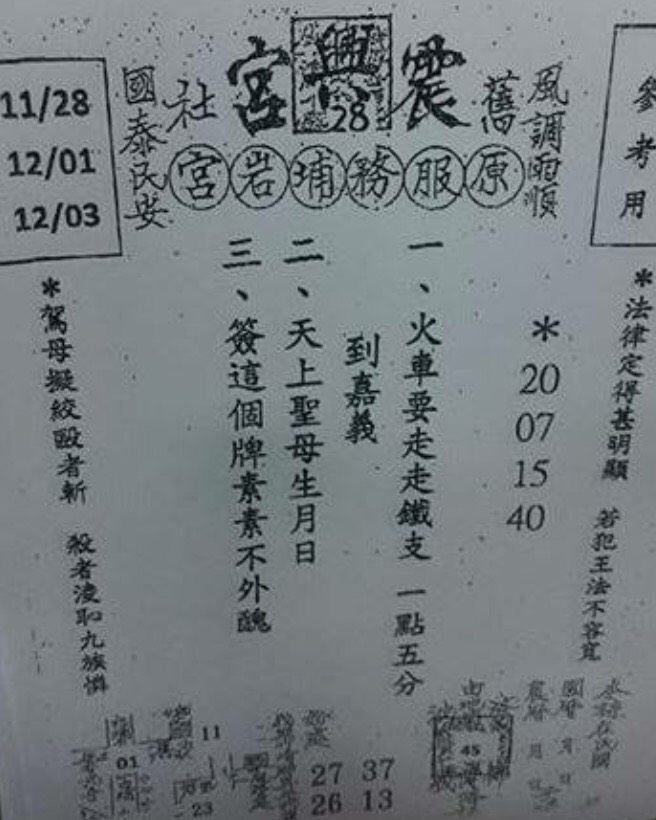 參考用
風調雨順
舊
震興宮
28
社
國泰民安
11/28
12/01
12/03
原服務埔岩宮
*法律定得甚明顯 若犯王法不容寬
*
20
07
15
40
一、火車要走走鐵支 一點五分
到嘉義
二、天上聖母生月日
三、簽這個牌素素不外醜
*駕母擬絞毆者斬 殺者凌恥九族憐
國曆 月 日
農曆 月 日
45
27 37
26 13
11
01
23